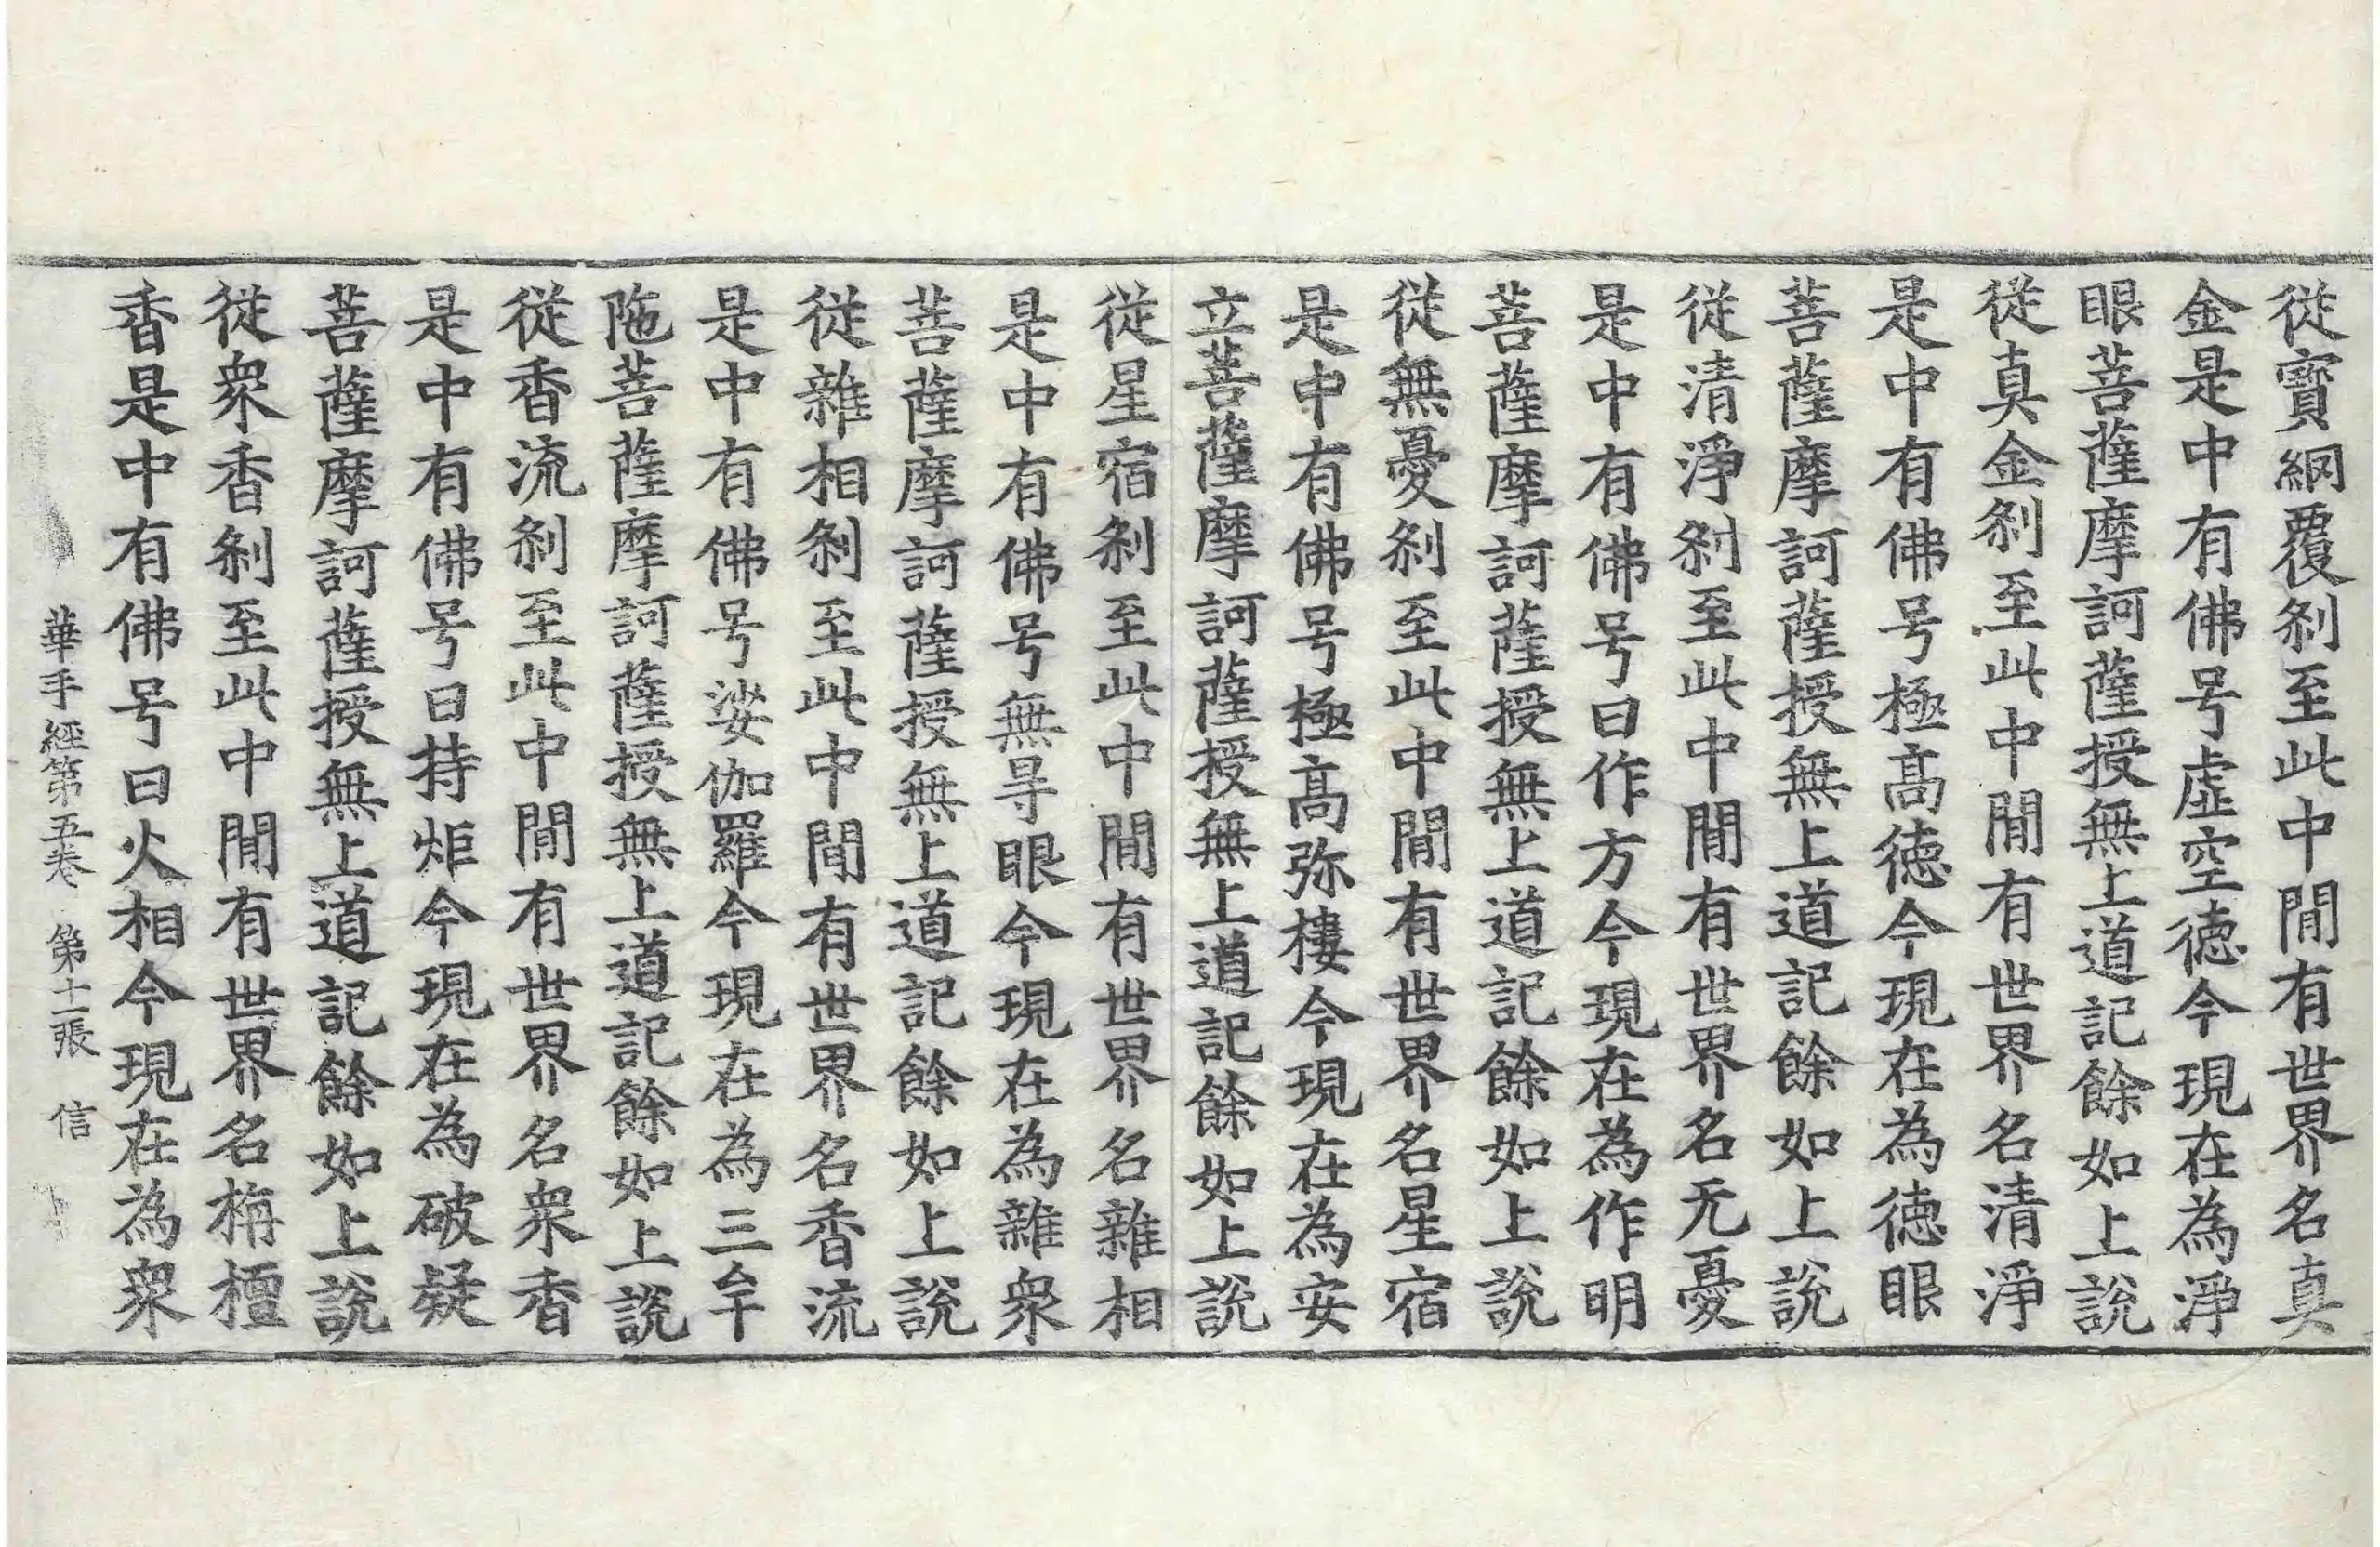 從寶網覆刹至此中閒有世界名真
金是中有佛号虛空徳今現在為淨
眼菩薩摩訶薩授無上道記餘如上說
從真金刹至此中閒有世界名清淨
是中有佛号極髙徳今現在為徳眼
菩薩摩訶薩授無上道記餘如上說
從清淨刹至此中閒有世界名无憂
是中有佛号曰作方今現在為作明
菩薩摩訶薩授無上道記餘如上說
從無憂刹至此中閒有世界名星宿
是中有佛号極髙弥樓今現在為安
立菩薩摩訶薩授無上道記餘如上說
從星宿刹至此中閒有世界名雜相
是中有佛号無㝵眼今現在為雜衆
菩薩摩訶薩授無上道記餘如上說
從雜相刹至此中閒有世界名香流
是中有佛号娑伽羅今現在為三牟
陁菩薩摩訶薩授無上道記餘如上說
從香流刹至此中閒有世界名衆香
是中有佛号曰持炬今現在為破疑
菩薩摩訶薩授無上道記餘如上說
從衆香刹至此中閒有世界名栴檀
香是中有佛号曰火相今現在為衆
華手經第五卷 第十二張 信